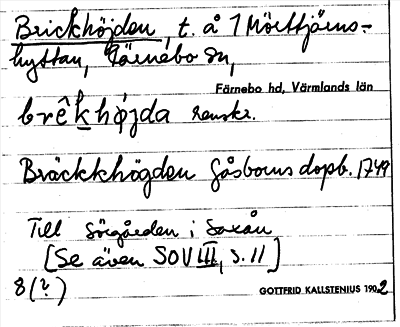 Brickhöjden, t. å 1 Mörttjärns-
hyttan, Färnebo sn,
Färnebo hd, Värmlands län
brêkhø̀jda renskr.
Bräckkhögden Gåsborns dopb. 1749
Till Sörgården i Saxån
[Se även SOV III, s. 11]
8 (?)
GOTTFRID KALLSTENIUS 1902